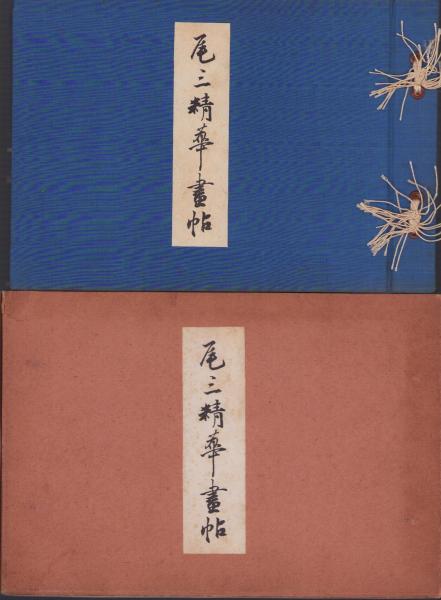 尾三精華畫帖
尾三精華畫帖